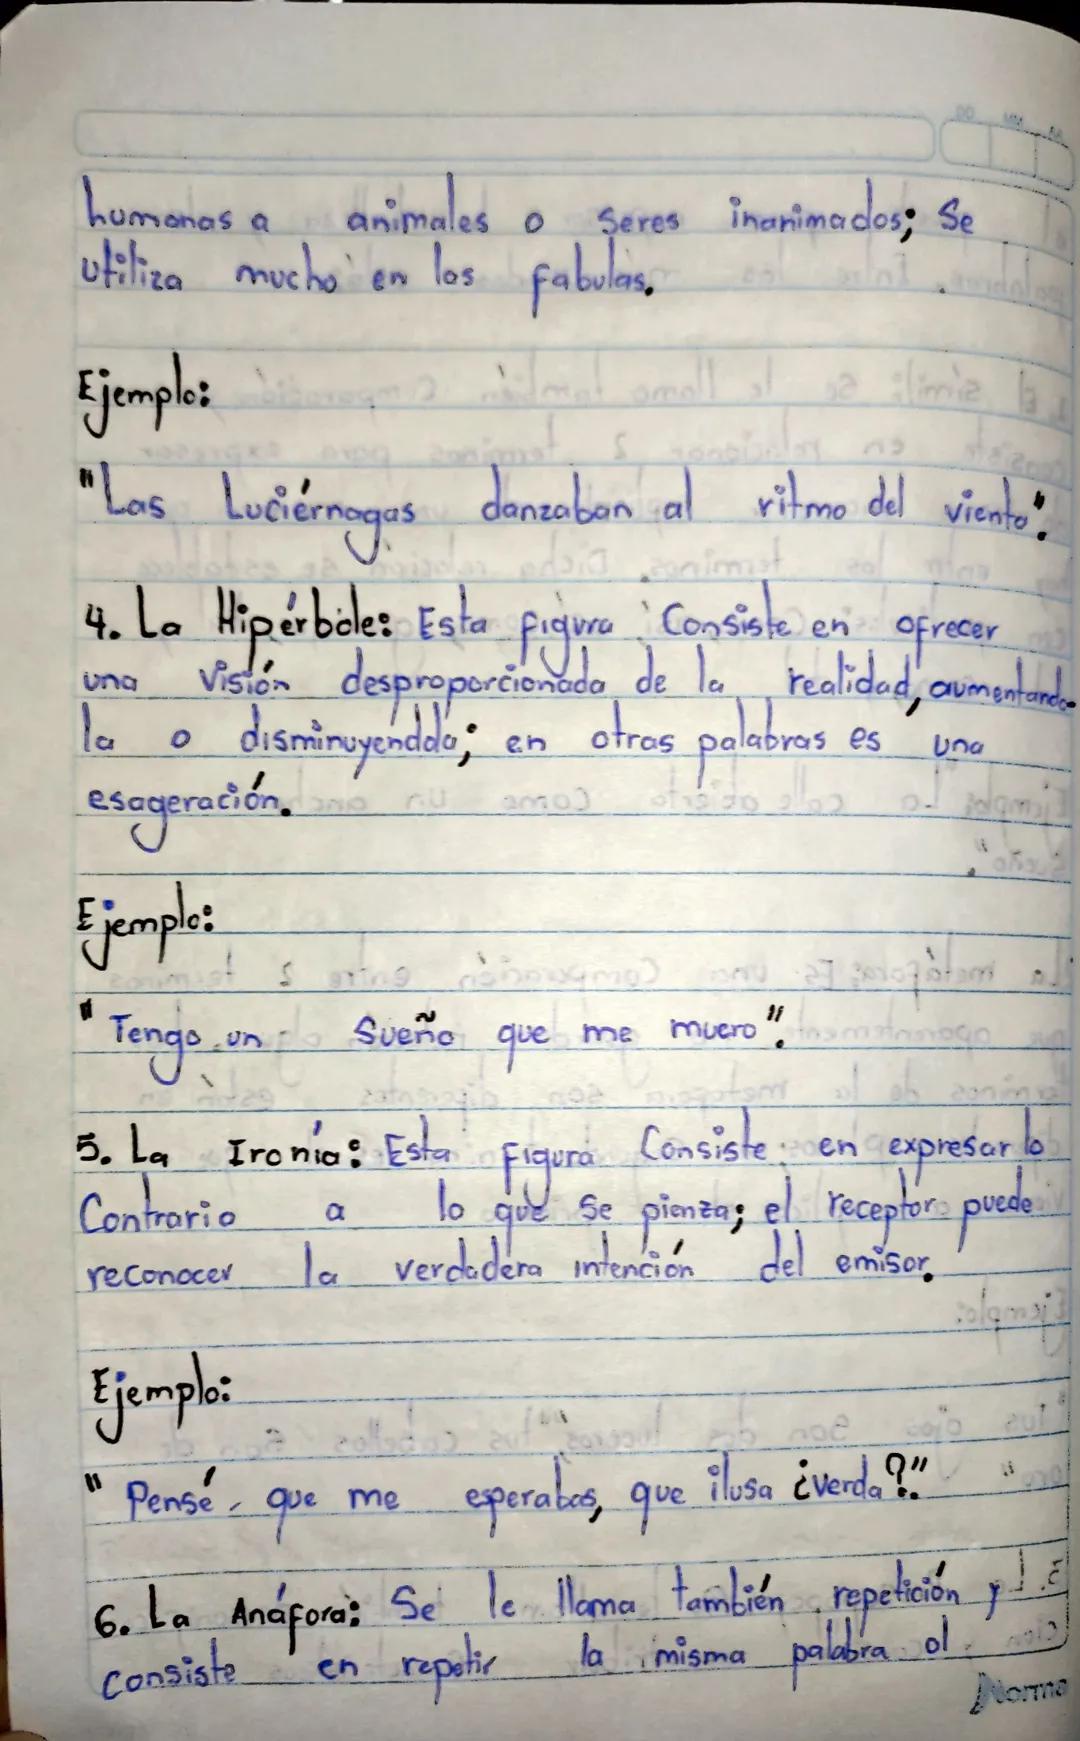 humanas a animales o seres inanimados; Se
utiliza mucho en las fabulas.
Ejemplo:
"Las Luciérnagas danzaban al ritmo del viento".
4. La Hipérbole: Esta figura Consiste en ofrecer
una Visión desproporcionada de la realidad, aumentando-
la o disminuyendola; en otras palabras es una
esageración.
Ejemplo:
"Tengo un Sueño que me muero".
5. La Ironía: Esta Figura Consiste en expresar lo
Contrario a lo que Se pienza; el receptor puede
reconocer la verdadera intención del emisor.
Ejemplo:
"Pensé que me esperabas, que ilusa ¿verda?".
6. La Anáfora: Se le llama también repetición y
consiste en repetir la misma palabra al
Norma